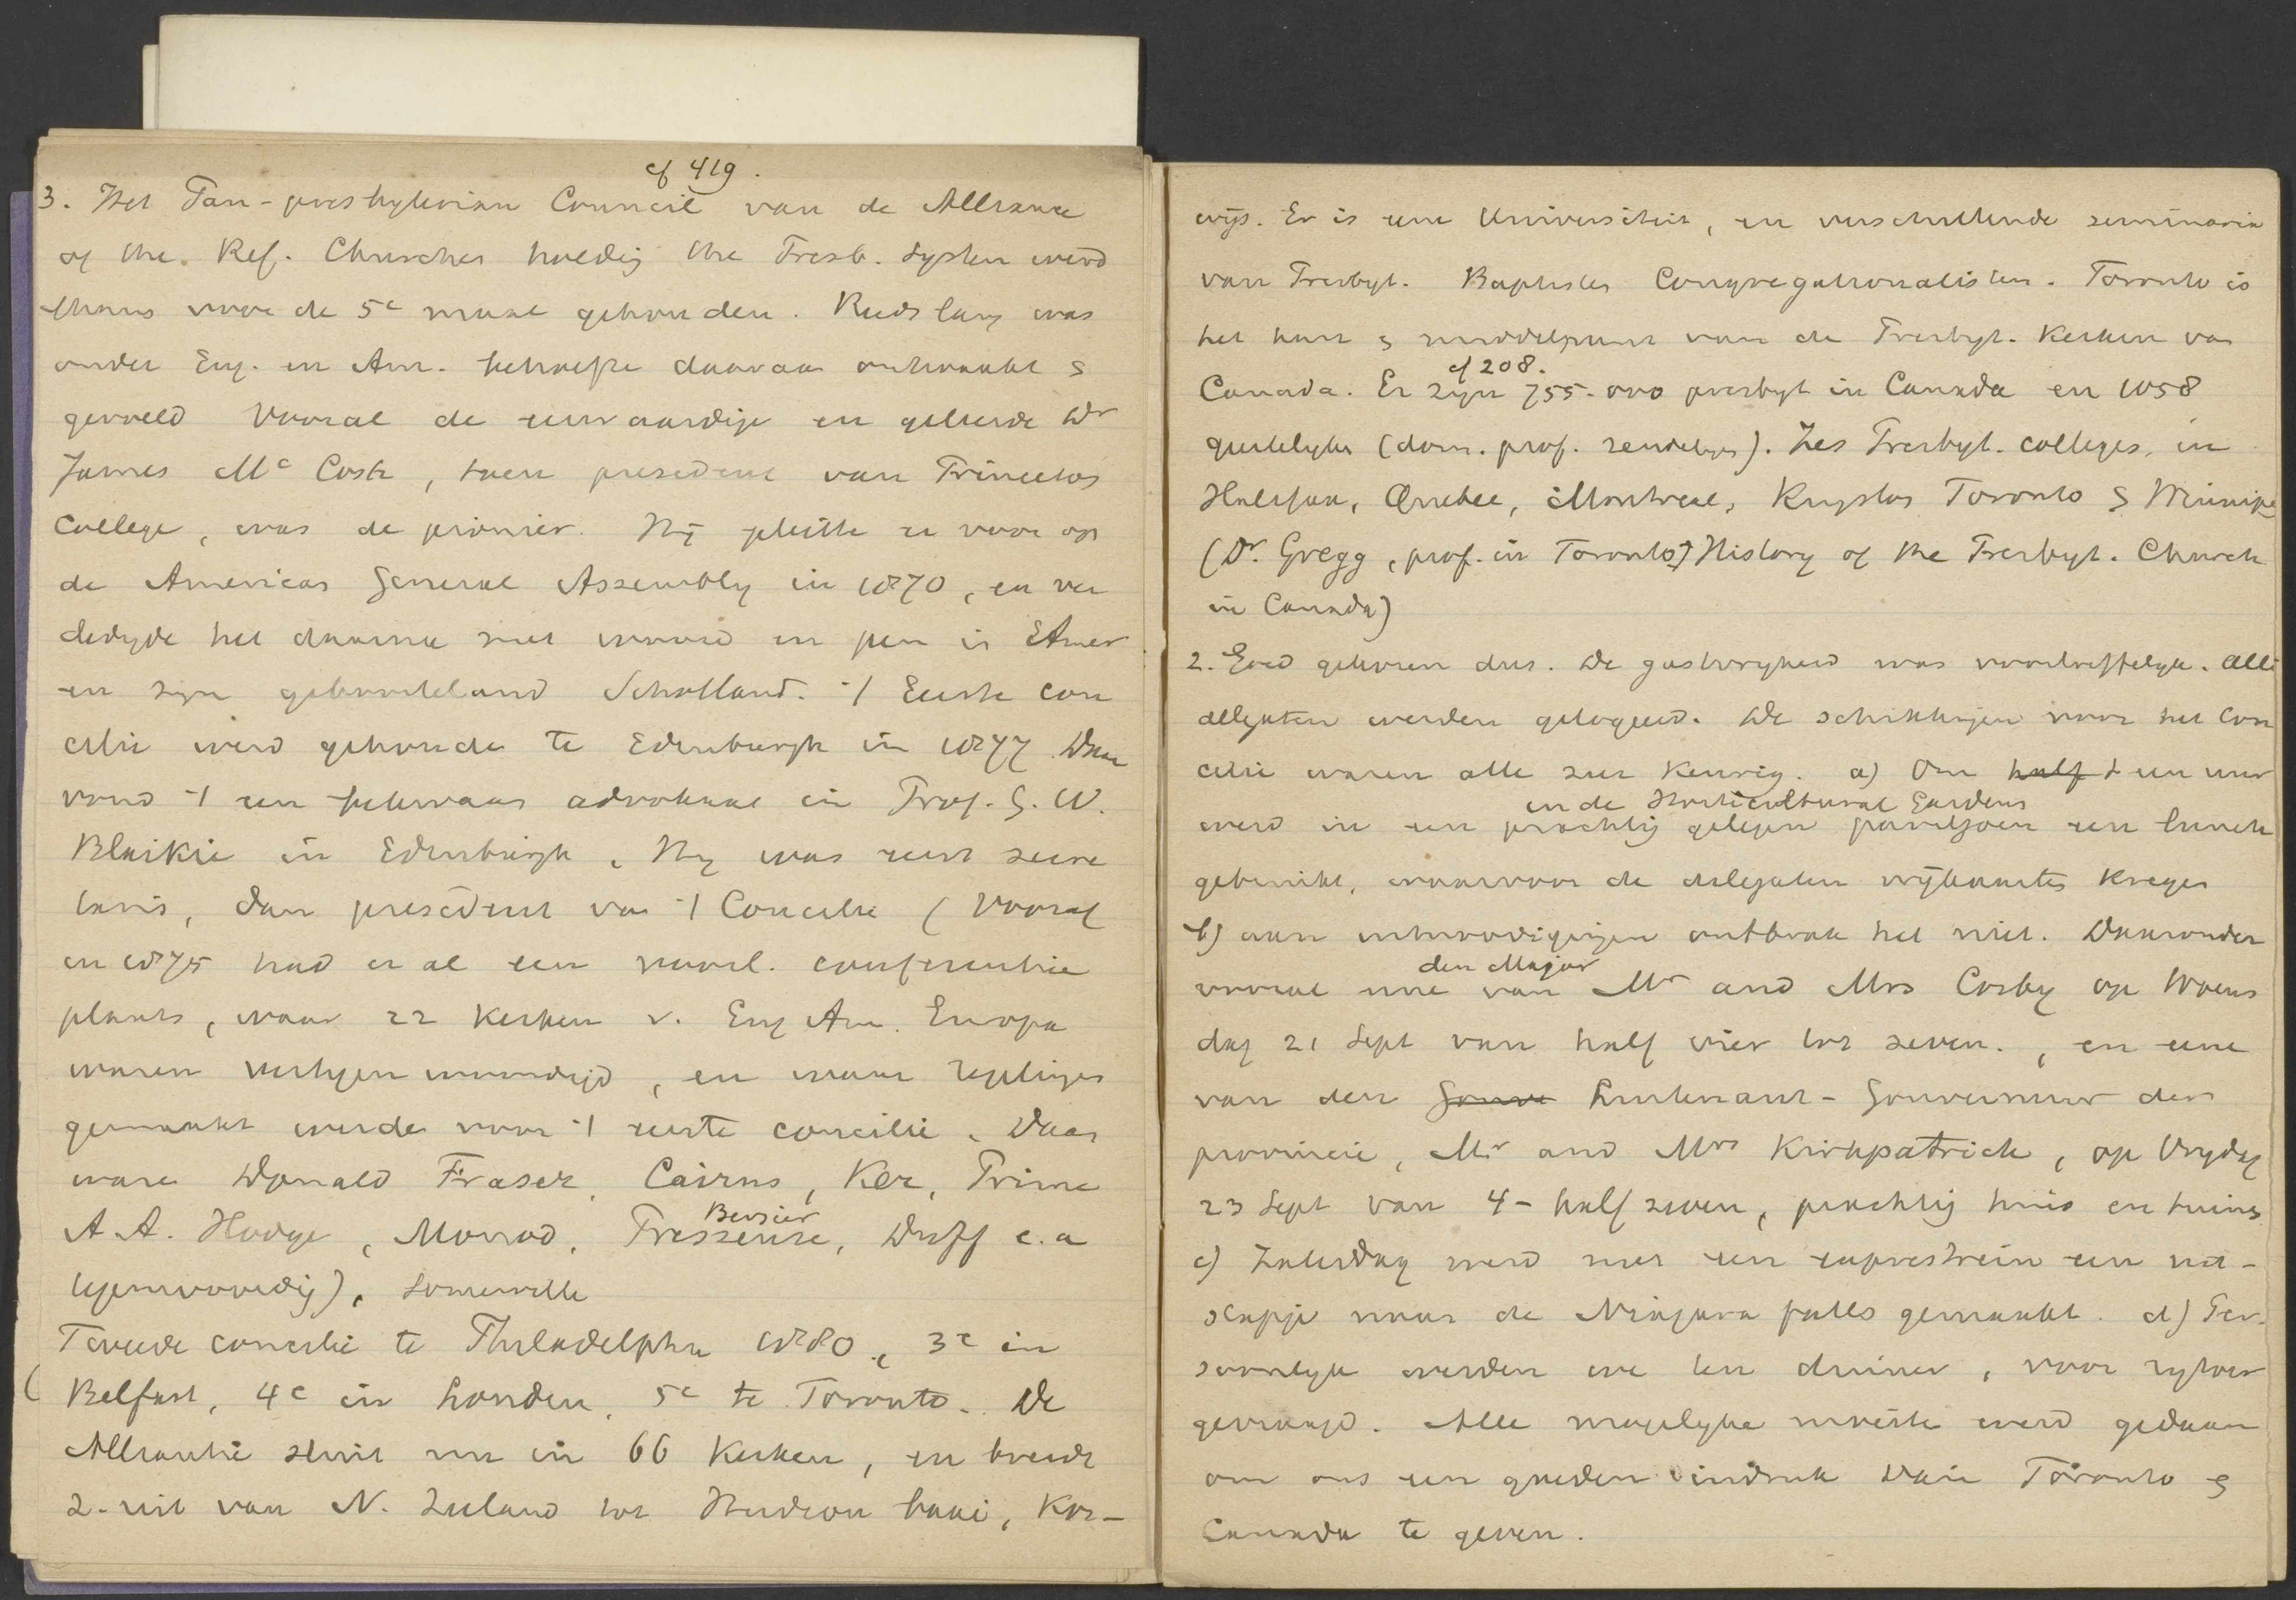 cf 419.
3. Het Pan-presbyterian Council van de Alliance
of the Ref. Churches holding the Presb. System werd
thans voor de 5e maal gehouden. Reeds lang was
onder Eng. en Am. behoefte daaraan ontwaakt &
gevoeld. Vooral de eerwaardige en geleerde Dr
James Mc Cosh, toen president van Princeton
College, was de pionier. Hij pleitte er voor op
de American General Assembly in 1870, en ver
dedigde het daarna met woord en pen in Amer
en zijn geboorteland Schotland. 't Eerste con
cilie werd gehouden te Edinburgh in 1877. Daar
vond 't een bekwaam advokaat in Prof. G. W.
Blaikie in Edinburgh. Hij was eerst secre
taris, dan president van 't Concilie (Vooraf
in 1875 had er al een voorl. conferentie
plaats, waar 22 Kerken v. Eng Am. Europa
waren vertegenwoordigd, en waar regelingen
gemaakt werden voor 't eerste concilie. Daar
waren Donald Fraser, Cairns, Ker, Prime
A.A. Hodge, Monod, Pressense, Bersier, Duff e.a
tegenwoordig), Somerville
Tweede concilie te Philadelphia 1880, 3e in
( Belfast, 4e in Londen, 5e te Toronto. De
Alliantie sluit nu in 66 Kerken, en breidt
z. uit van N. Zeeland tot Hudson baai, Kor-
wijs. Er is eene Universiteit, en verschillende seminaria
van Presbyt. Baptisten Congregationalisten. Toronto is
het hart & middelpunt van de Presbyt. Kerken van
cf 208.
Canada. Er zijn 755.000 presbyt in Canada en 1058
geestelijken (dom. prof. zendelingen). Zes Presbyt. colleges, in
Halifax, Quebec, Montreal, Kingston Toronto & Winnipeg
(Dr. Gregg, prof. in Toronto, History of the Presbyt. Church
in Canada)
2. Goed gekozen dus. De gastvrijheid was voortreffelijk. Alle
delegaten werden gelogeerd. De schikkingen voor het con
cilie waren alle zeer keurig. a) Om half 1 een uur
in de Horticultural Gardens
werd in een prachtig gelegen paviljoen een lunch
gebruikt, waarvoor de delegaten vrijkaartes kregen
b) aan uitnoodigingen ontbrak het niet. Daaronder
den Major
vooral eene van Mr and Mrs Cosby op Woens
dag 21 Sept van half vier tot zeven., en eene
van den Gouve Luitenant-Gouverneur der
provincie, Mr and Mrs Kirkpatrick, op Vrijdag
23 Sept van 4-half zeven, prachtig huis en tuin
c) Zaterdag werd met een exprestrein een uit-
stapje naar de Niagara falls gemaakt. d) Per-
soonlijk werden we ten dineer, voor rijtoer
gevraagd. Alle mogelijke moeite werd gedaan
om ons een goeden indruk van Toronto &
Canada te geven.